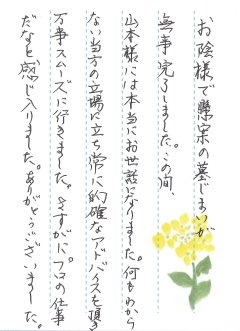 お陰様で懸案の墓じまいが
無事完了しました。この間、
山本様には本当にお世話になりました。何もわから
ない当方の立場に立ち常に的確なアドバイスを頂き
万事スムーズに行きました。さすがに、プロの仕事
だなと感じ入りました。ありがとうございました。